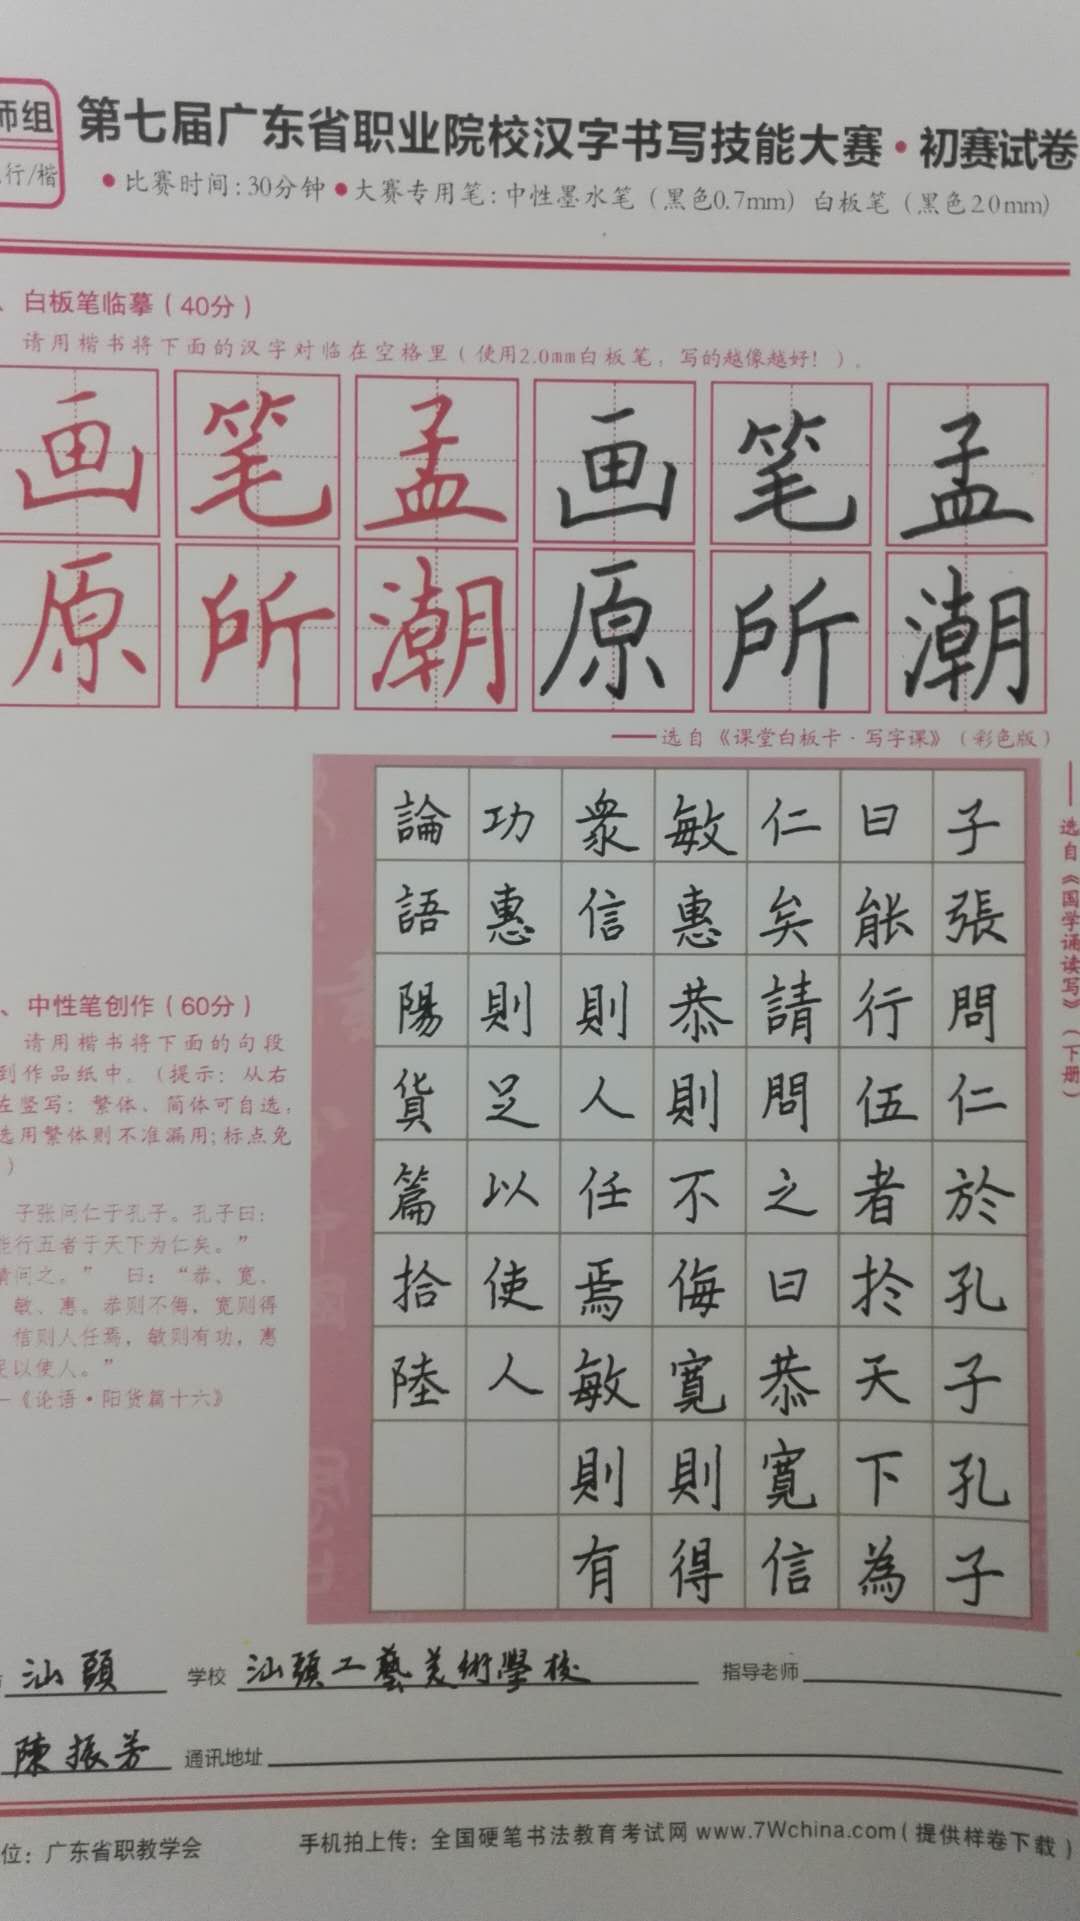 师组
行/楷
第七届广东省职业院校汉字书写技能大赛·初赛试卷
●比赛时间:30分钟●大赛专用笔:中性墨水笔（黑色0.7mm）白板笔（黑色2.0mm）
、白板笔临摹（40分）
请用楷书将下面的汉字对临在空格里（使用2.0mm白板笔，写的越像越好！）。
画笔孟画笔孟
原所潮原所潮
——选自《课堂白板卡·写字课》（彩色版）
——选自《国学诵读写》（下册）
子張問仁於孔子孔子
曰能行伍者扵天下為
仁矣請問之曰恭寬信
敏惠恭則不侮寬則得
衆信則人任焉敏則有
功惠則足以使人
論語陽貨篇拾陸
、中性笔创作（60分）
请用楷书将下面的句段
到作品纸中。（提示：从右
左竖写；繁体、简体可自选，
选用繁体则不准漏用;标点免
）
子张问仁于孔子。孔子曰：
能行五者于天下为仁矣。”
请问之。” 曰：“恭、宽、
敏、惠。恭则不侮，宽则得
信则人任焉，敏则有功，惠
足以使人。”
—《论语·阳货篇十六》
汕頭 学校 汕頭工藝美術學校 指导老师
陳振芳 通讯地址
位：广东省职教学会 手机拍上传：全国硬笔书法教育考试网 www.7Wchina.com（提供样卷下载）